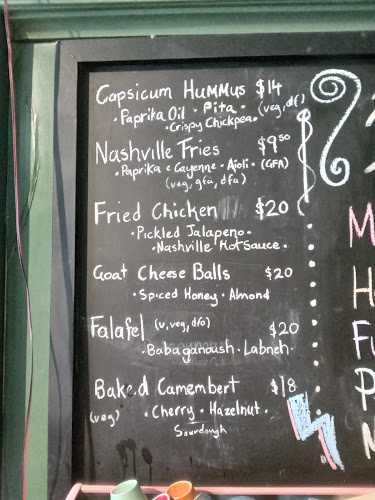 Capsicum Hummus $14
• Paprika Oil • Pita • (veg, df)
• Crispy Chickpea
Nashville Fries $9.50
• Paprika & Cayenne • Aioli • (GFA)
(veg, gfa, dfa)
Fried Chicken $20
• Pickled Jalapeno •
• Nashville Hot Sauce •
Goat Cheese Balls $20
• Spiced Honey • Almond
Falafel (v, veg, dfo) $20
• Babaganoush • Labneh •
Baked Camembert $18
(veg) • Cherry • Hazelnut •
Sourdough